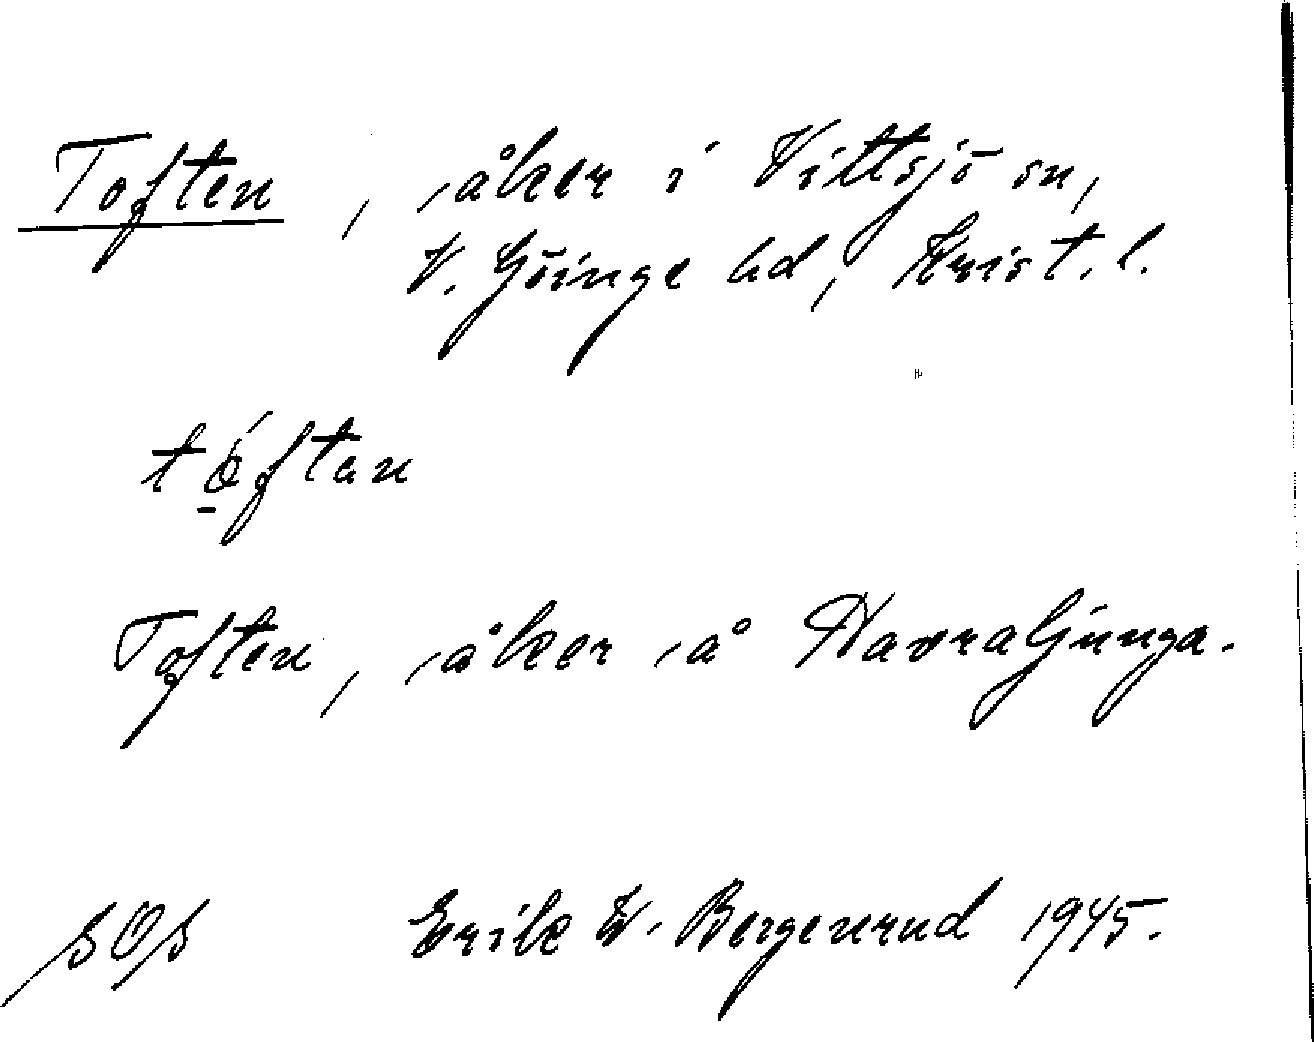 Toften, åker i Vittsjö sn,
V. Göinge hd, Krist. l.
tóftan
Toften, åker å Havraljunga.
SOS Erik W. Bergenrud 1945.